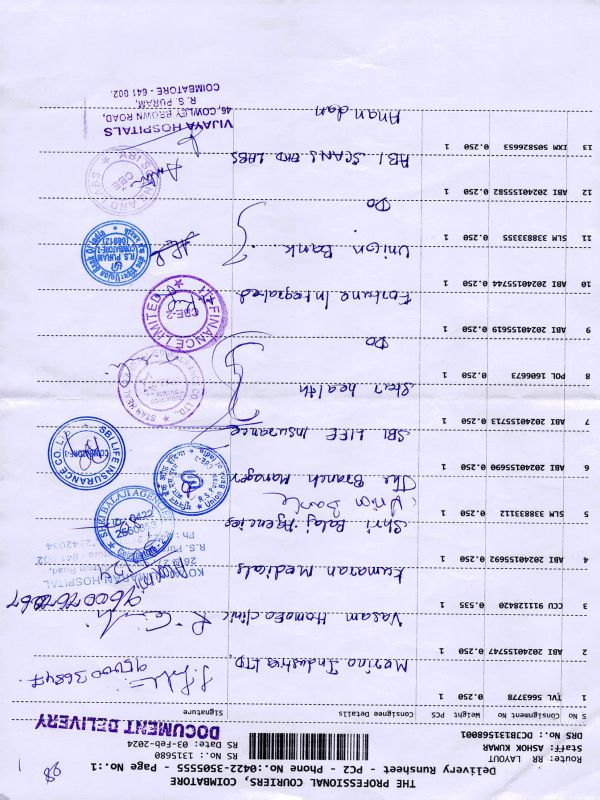 THE PROFESSIONAL COURIERS, COIMBATORE
Delivery Runsheet - PC2 - Phone No.:0422-3505555 - Page No.:1
98
Route: RR LAYOUT
Staff: ASHOK KUMAR RS No: 1315680
DRS No.: DC2B131568001 RS Date: 03-Feb-2024
DOCUMENT DELIVERY
S No Consignment No Weight PCS Consignee Details Signature
1 TVL 5663778 0.250 1 Merino Industries LTD,
2 ABI 20240155747 0.250 1 Vasam Homoeo clinic
3 CCU 911128420 0.535 1 Kumaran Medicals
4 ABI 20240155692 0.250 1 Shri Balaji Agencies
Union Bank
5 SLM 33883312 0.250 1 The Branch Manager
6 ABI 20240155690 0.250 1 SBI LIFE Insurance
7 ABI 20240155713 0.250 1 Star health
8 POL 1606673 0.250 1 Do
9 ABI 20240155619 0.250 1 Fortune Integrated
10 ABI 20240155744 0.250 1 Union Bank
11 SLM 33883355 0.250 1 Do
12 ABI 20240155582 0.250 1 ABI SCANS AND LABS
13 IXM 505826653 0.250 1 Anandan
SHRI BALAJI AGENCIES
SBI LIFE INSURANCE CO. LTD.
COIMBATORE
FINANCE LIMITED
CBE-2
R.S. PURAM
COIMBATORE-2
ABI SCANS AND LABS
CBE
VIJAYA HOSPITALS
46, COWLEY BROWN ROAD,
R. S. PURAM,
COIMBATORE - 641 002.